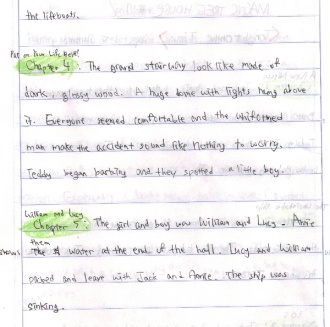 the lifeboats.
Put on Your Life Vest!
Chapter 4: The grand stairway look like made of
dark, glossy wood. A huge dome with lights hung above
it. Everyone seemed comfortable and the uniformed
man make the accident sound like nothing to worry.
Teddy began barking and they spotted a little boy.
William and Lucy
Chapter 5: The girl and boy was William and Lucy. Annie
them
The water at the end of the hall. Lucy and William
packed and leave with Jack and Annie. The ship was
sinking.